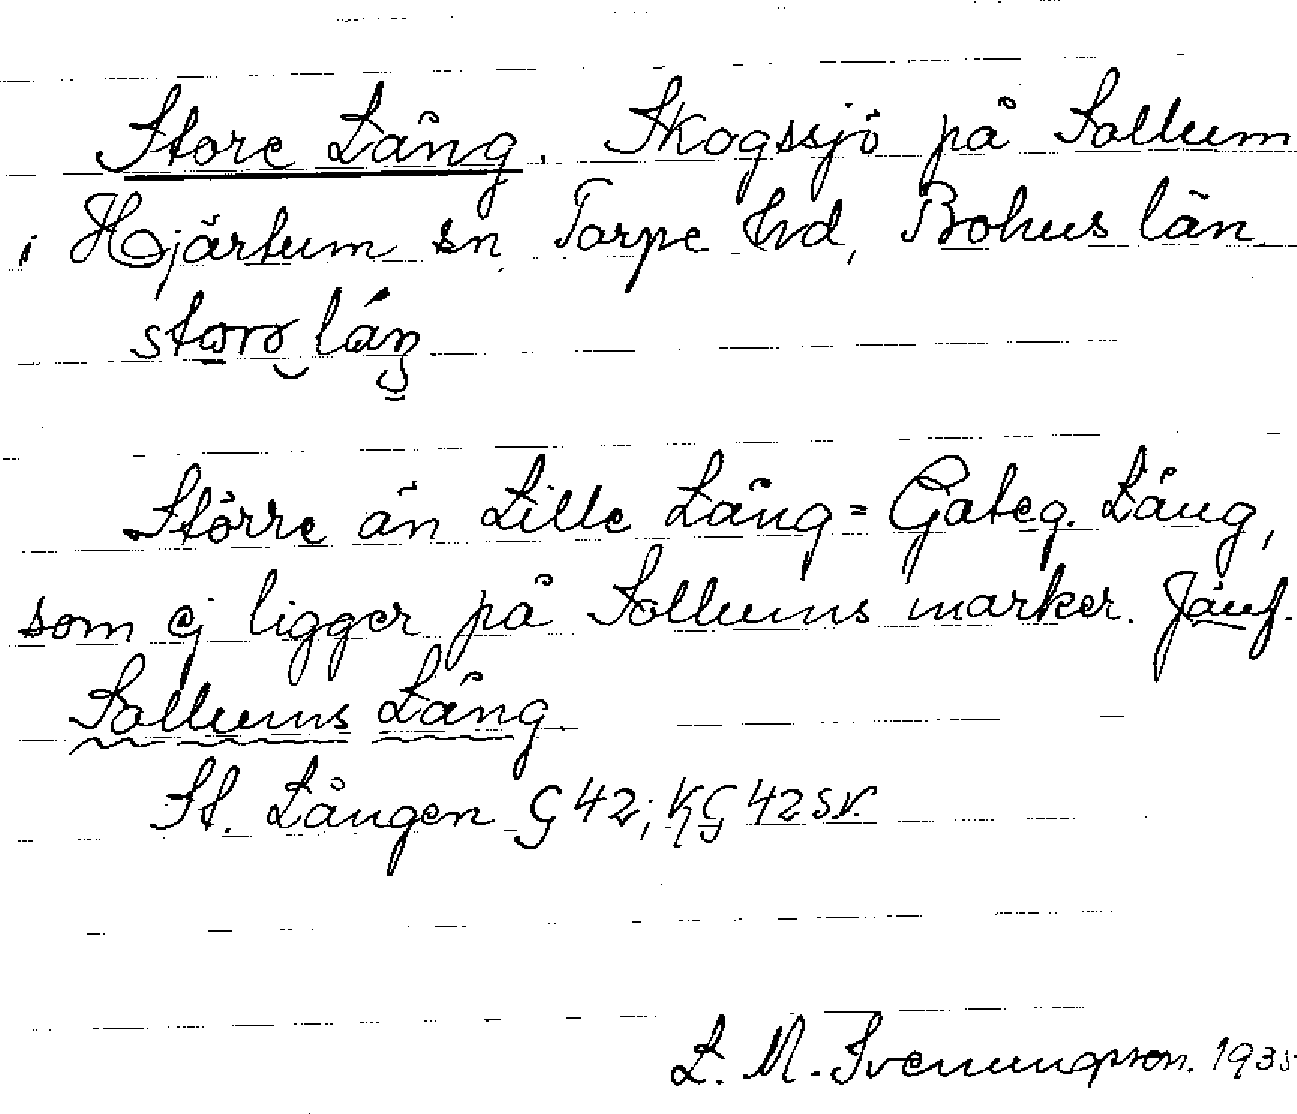 Store Lång. Skogssjö på Sollum
i Hjärtum sn, Torpe hd, Bohus län
Större än Lille Lång = Gateg. Lång,
som ej ligger på Sollums marker. Jämf.
Sollums Lång.
St. Lången G 42; KG 42 SV.
L. M. Svenungsson. 1935